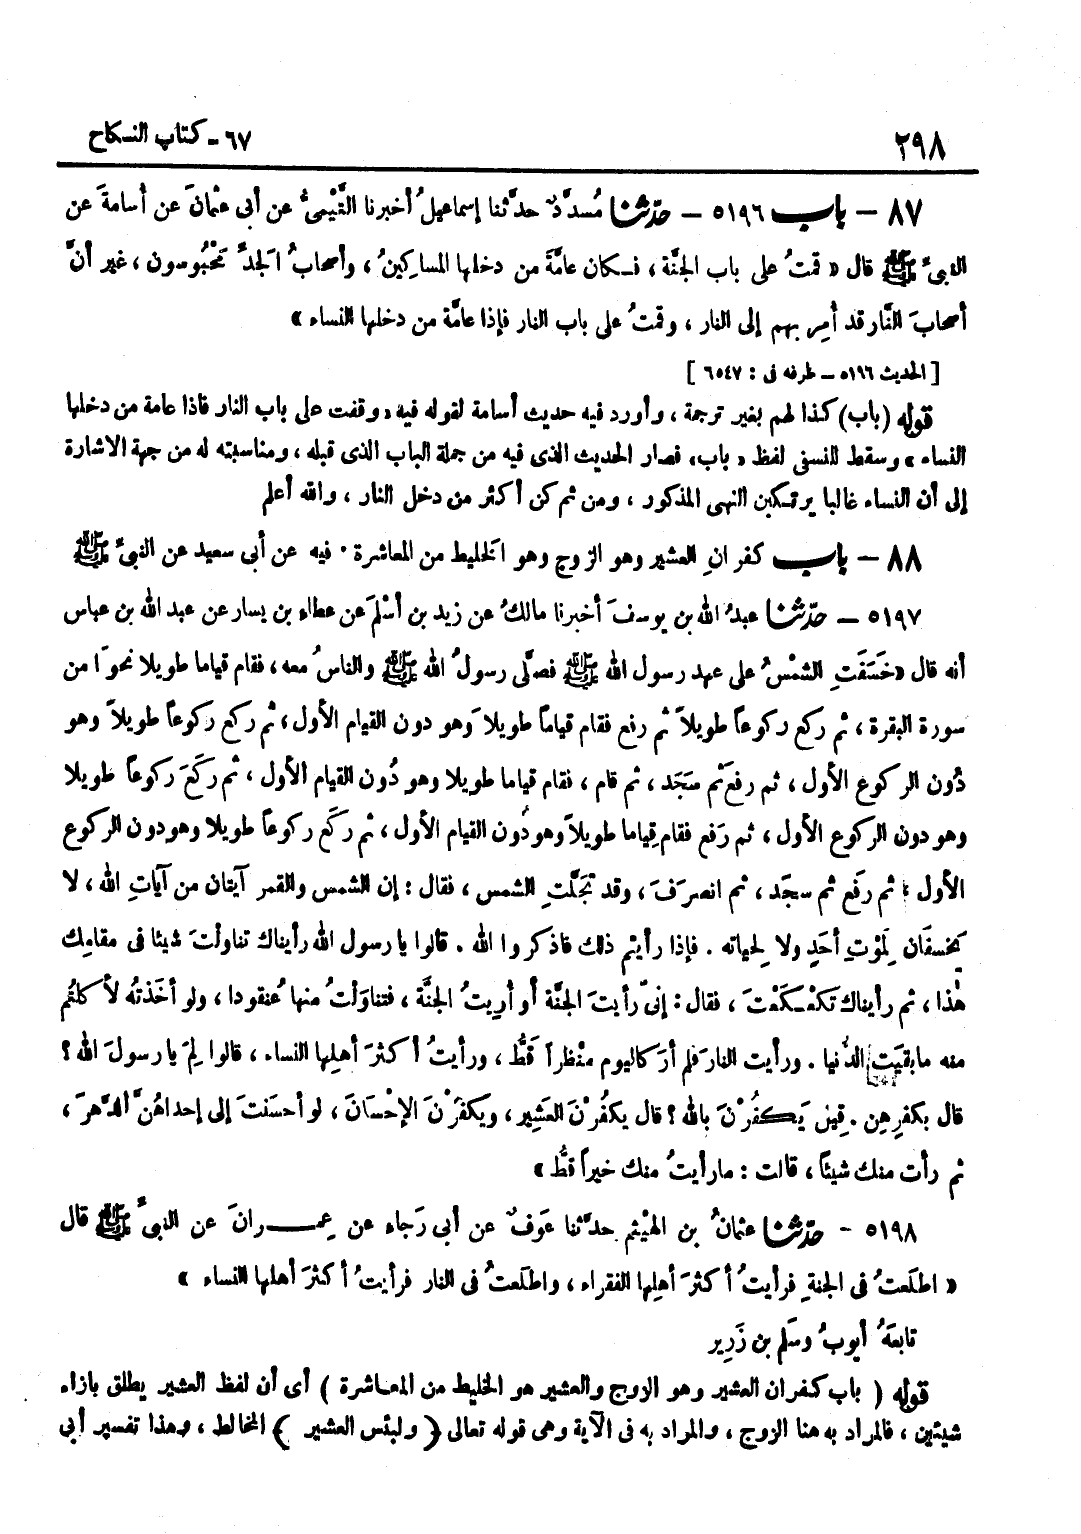 ٢٩٨
٦٧ - كتاب النكاح
٨٧ - باب ٥١٩٦ - حدّثنا مُسدَّدٌ حدَّثنا إسماعيلُ أخبرنا التَّيْمىُّ عن أبى عثمانَ عن أسامةَ عن
النبىِّ ﷺ قال « قمتُ على باب الجنَّة ، فـكان عامَّةَ من دخلها المساكينُ ، وأصحابُ الجدِّ مَحْبُوسون ، غير أنَّ
أصحابَ النَّار قد أمِر بهم إلى النار ، وقمتُ على باب النار فإذا عامَّة من دخلها النساء »
[ الحديث ٥١٩٦ - طرفه فى : ٦٥٤٧ ]
قوله (باب) كذا لهم بغير ترجمة ، وأورد فيه حديث أسامة لقوله فيه « وقفت على باب النار فاذا عامة من دخلها
النساء » وسقط للنسفى لفظ « باب » فصار الحديث الذى فيه من جملة الباب الذى قبله ، ومناسبته له من جهة الاشارة
إلى أن النساء غالبا يرتـكبن النهى المذكور ، ومن ثم كن أكثر من دخل النار ، والله أعلم
٨٨ - باب كفرانِ العشير وهو الزوج وهو الخليط من المعاشرة . فيه عن أبى سعيد عن النبىِّ ﷺ
٥١٩٧ - حدّثنا عبدُ الله بن يوسفَ أخبرنا مالكُ عن زيد بن أسْلَمَ عن عطاء بن يسار عن عبد الله بن عباس
أنه قال « خَسَفَتِ الشمْسُ على عهد رسول الله ﷺ فصلَّى رسولُ الله ﷺ والناسُ معه ، فقام قياما طويلا نحوًا من
سورة البقرة ، ثم ركع ركوعاً طويلاً ثم رفع فقام قياماً طويلا وَهو دون القيام الأول ، ثم ركع ركوعاً طويلاً وهو
دُون الركوع الأول ، ثم رفعَ ثم سجَد ، ثم قام ، فقام قياما طويلا وهو دُون القيام الأول ، ثم ركَعَ ركوعاً طويلا
وهو دون الركوع الأول ، ثم رَفع فقام قِياما طويلاً وهو دُون القيام الأول ، ثم ركَع ركوعاً طويلا وهو دون الركوع
الأول ، ثم رفَع ثم سجَد ، ثم انصرَفَ ، وقد تَجلَّتِ الشمس ، فقال : إن الشمس والقمر آيتان من آياتِ الله ، لا
يَخسفَان لِمَوْتِ أحَدٍ ولا لِحياته . فإذا رأيتم ذلك فاذكروا الله . قالوا يا رسول الله رأيناك تناولْتَ شيئا فى مقامِك
هٰذا ، ثم رأيناك تكعْـكَعْتَ ، فقال : إنىّ رأيتَ الجنَّة أو أريتُ الجنَّة ، فتناوَلْتُ منها عُنقودا ، ولو أخَذتُه لأكلْتُم
منه ما بقيَتِ الدُّنيا . ورأيت النارَ فلم أرَ كاليوم منْظراً قطُّ ، ورأيتُ أكثرَ أهلِها النساء ، قالوا لِمَ يا رسولَ الله ؟
قال بكفرِهِن . قِيلَ يَـكفُرْنَ بالله ؟ قال يكفُرْنَ العَشِير ، ويَكفرْنَ الإحْسَانَ ، لو أحسَنتَ إلى إحداهُنَّ الدَّهرَ ،
ثم رأت منك شيئاً ، قالت : ما رأيتُ منك خيراً قطُّ »
٥١٩٨ - حدّثنا عثمانُ بن الهيْثم حدَّثنا عَوفٌ عن أبى رَجاء عن عِمـرانَ عن النبىِّ ﷺ قال
« اطلَعتُ فى الجنةِ فرأيتُ أكثرَ أهلِها الفقراء ، واطلَعتُ فى النار فرأيتُ أكثرَ أهلها النساء »
تابعَهُ أيوبُ وسَلم بن زَرِير
قوله ( باب كفران العشير وهو الزوج والعشير هو الخليط من المعاشرة ) أى أن لفظ العشير يطلق بازاء
شيئين ، فالمراد به هنا الزوج ، والمراد به فى الآية وهى قوله تعالى ( ولبئس العشير ) المخالط ، وهذا تفسير أبى